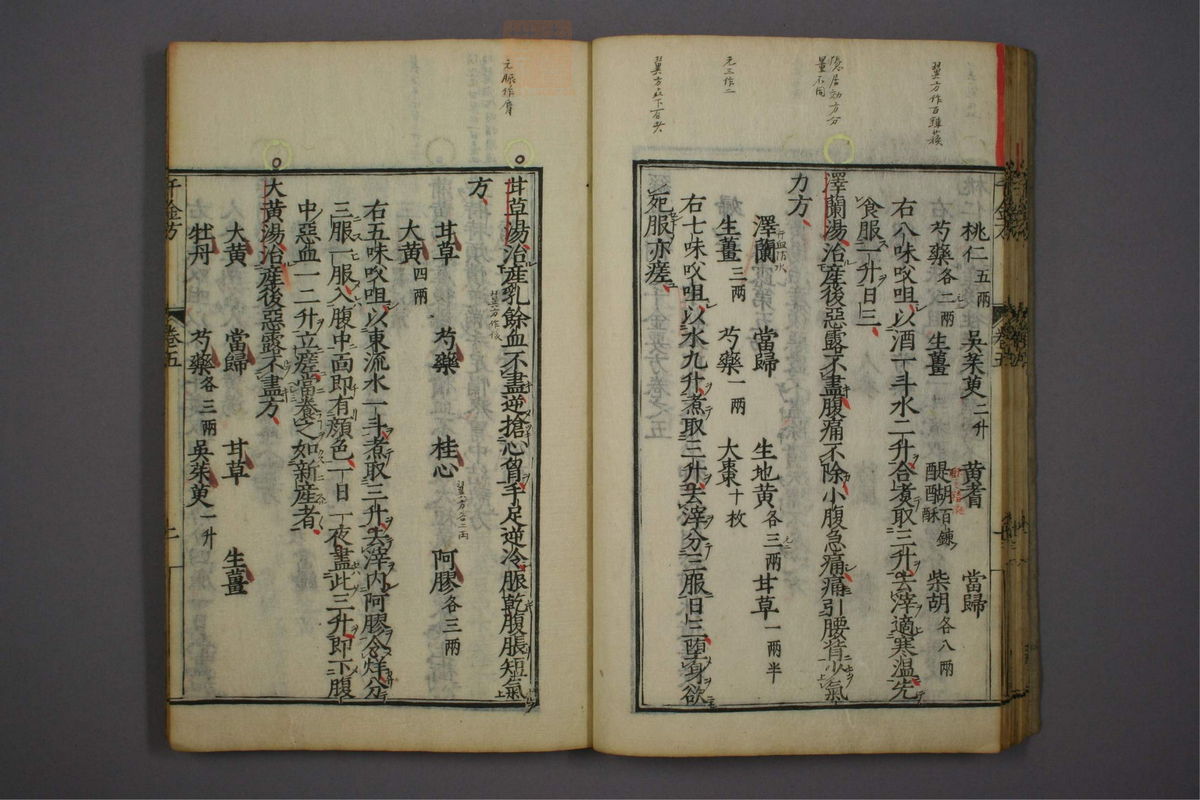 桃仁五兩 吳茱萸二升 黃耆 當歸
芍藥各三兩 生薑 醍醐百鍊酥 柴胡各八兩
右八味㕮咀以酒一斗水二升合煮取三升去滓適寒溫先
食服一升日三
澤蘭湯治產後惡露不盡腹痛不除小腹急痛痛引腰背少氣
力方
澤蘭 當歸 生地黃各三兩 甘草一兩半
生薑三兩 芍藥一兩 大棗十枚
右七味㕮咀以水九升煮取三升去滓分三服日三墮身欲
死服亦瘥
甘草湯治產乳餘血不盡逆搶心胷手足逆冷脈乾腹脹短氣
方
甘草 芍藥 桂心 阿膠各三兩
大黃四兩
右五味㕮咀以東流水一斗煮取三升去滓內阿膠令烊分
三服一服入腹中面即有顏色一日一夜盡此三升即下腹
中惡血一二升立瘥當養之如新產者
大黃湯治產後惡露不盡方
大黃 當歸 甘草 生薑
牡丹 芍藥各三兩 吳茱萸一升
千金方 卷五
翼方作百鍊酥
隱居効方分
量不同
元三作二
元脈作唇
翼方各二兩